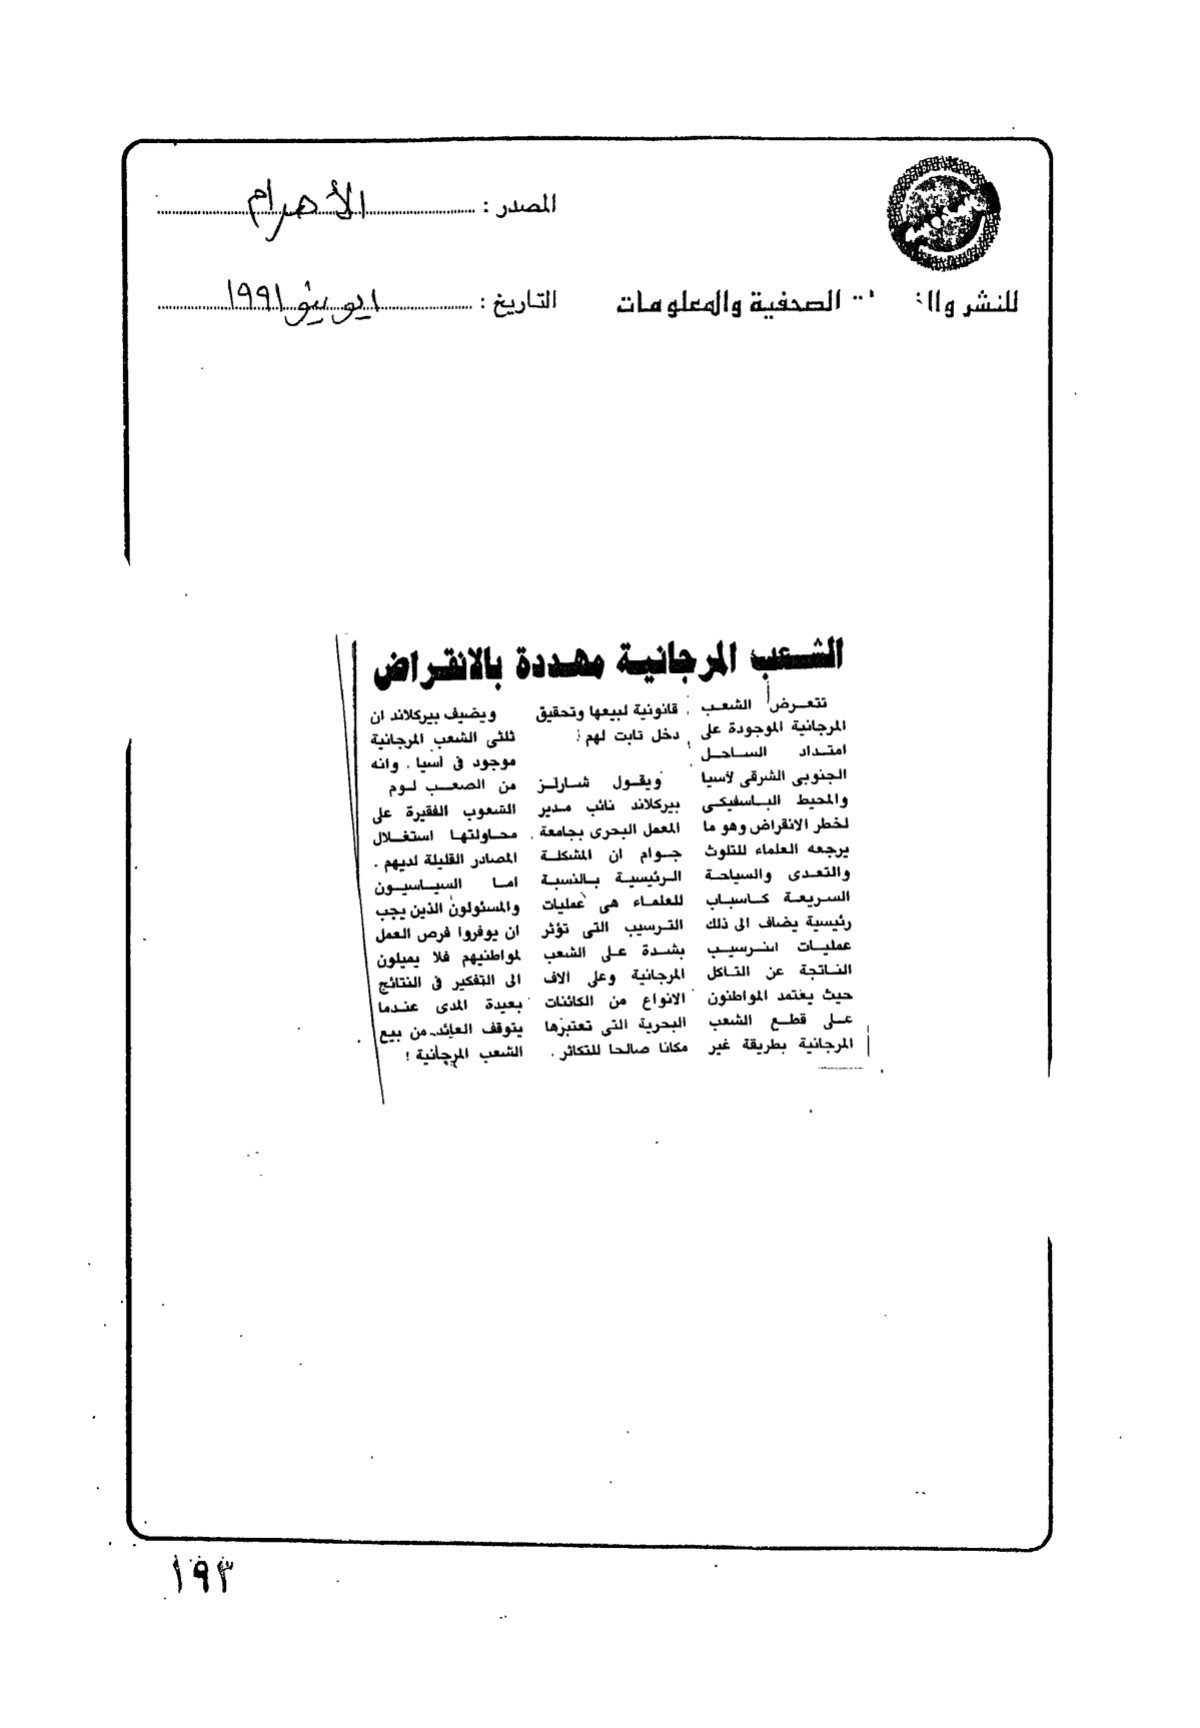 المصدر : الأهرام
للنشر والخدمات الصحفية والمعلومات
التاريخ : ١ يونيو ١٩٩١
الشعب المرجانية مهددة بالانقراض
تتعرض الشعب
المرجانية الموجودة على
امتداد الساحل
الجنوبى الشرقى لآسيا
والمحيط الباسفيكى
لخطر الانقراض وهو ما
يرجعه العلماء للتلوث
والتعدى والسياحة
السريعة كاسباب
رئيسية يضاف الى ذلك
عمليات الترسيب
الناتجة عن التاكل
حيث يعتمد المواطنون
على قطع الشعب
المرجانية بطريقة غير
قانونية لبيعها وتحقيق
دخل ثابت لهم
ويقول شارلز
بيركلاند نائب مدير
المعمل البحرى بجامعة
جوام ان المشكلة
الرئيسية بالنسبة
للعلماء هى عمليات
الترسيب التى تؤثر
بشدة على الشعب
المرجانية وعلى الاف
الانواع من الكائنات
البحرية التى تعتبرها
مكانا صالحا للتكاثر .
ويضيف بيركلاند ان
ثلثى الشعب المرجانية
موجود فى آسيا . وانه
من الصعب لوم
الشعوب الفقيرة على
محاولتها استغلال
المصادر القليلة لديهم .
اما السياسيون
والمسئولون الذين يجب
ان يوفروا فرص العمل
لمواطنيهم فلا يميلون
الى التفكير فى النتائج
بعيدة المدى عندما
يتوقف العائد من بيع
الشعب المرجانية !
١٩٣